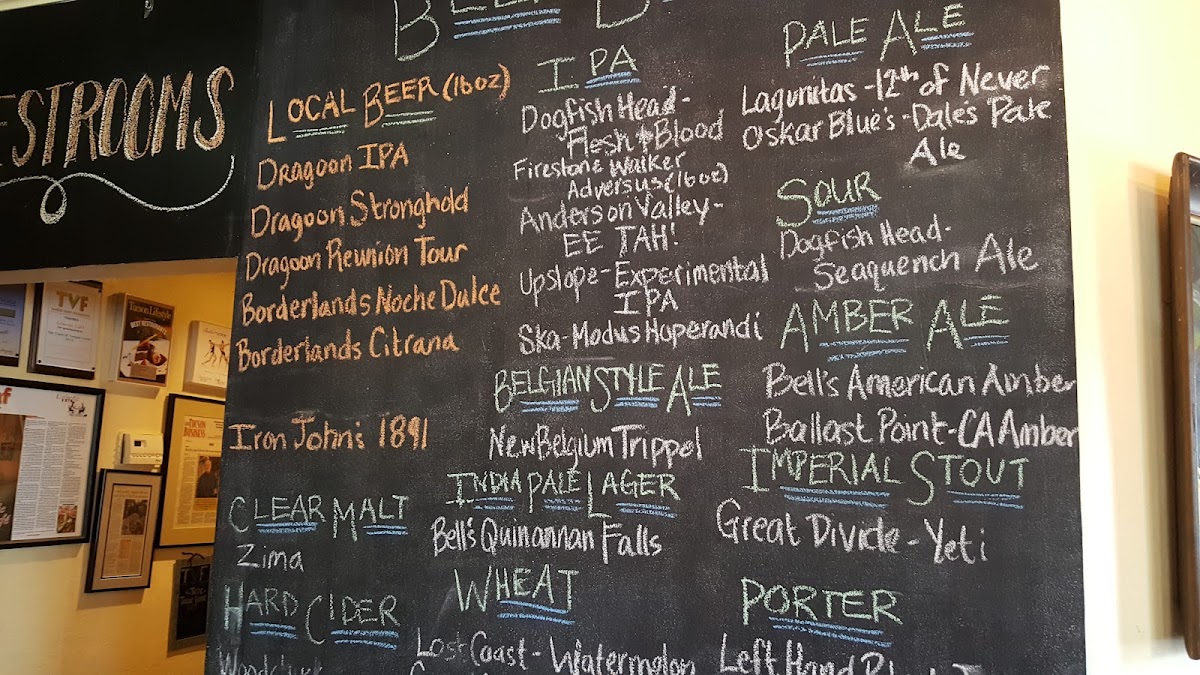 RESTROOMS
BEER
LOCAL BEER (16oz)
Dragoon IPA
Dragoon Stronghold
Dragoon Reunion Tour
Borderlands Noche Dulce
Borderlands Citrana
Iron John's 1891
CLEAR MALT
Zima
HARD CIDER
Woodchuck
IPA
Dogfish Head-
Flesh + Blood
Firestone Walker
Adversus (16oz)
Anderson Valley-
EE TAH!
Upslope-Experimental
IPA
Ska-Modus Hoperandi
BELGIAN STYLE ALE
New Belgium Trippel
INDIA PALE LAGER
Bell's Quinannan Falls
WHEAT
Lost Coast - Watermelon
PALE ALE
Lagunitas -12th of Never
Oskar Blue's -Dale's Pale
Ale
SOUR
Dogfish Head-
Seaquench Ale
AMBER ALE
Bell's American Amber
Ballast Point-CA Amber
IMPERIAL STOUT
Great Divide - Yeti
PORTER
Left Hand
TVF
Tucson Lifestyle
BEST RESTAURANTS
TUCSON
BUSINESS